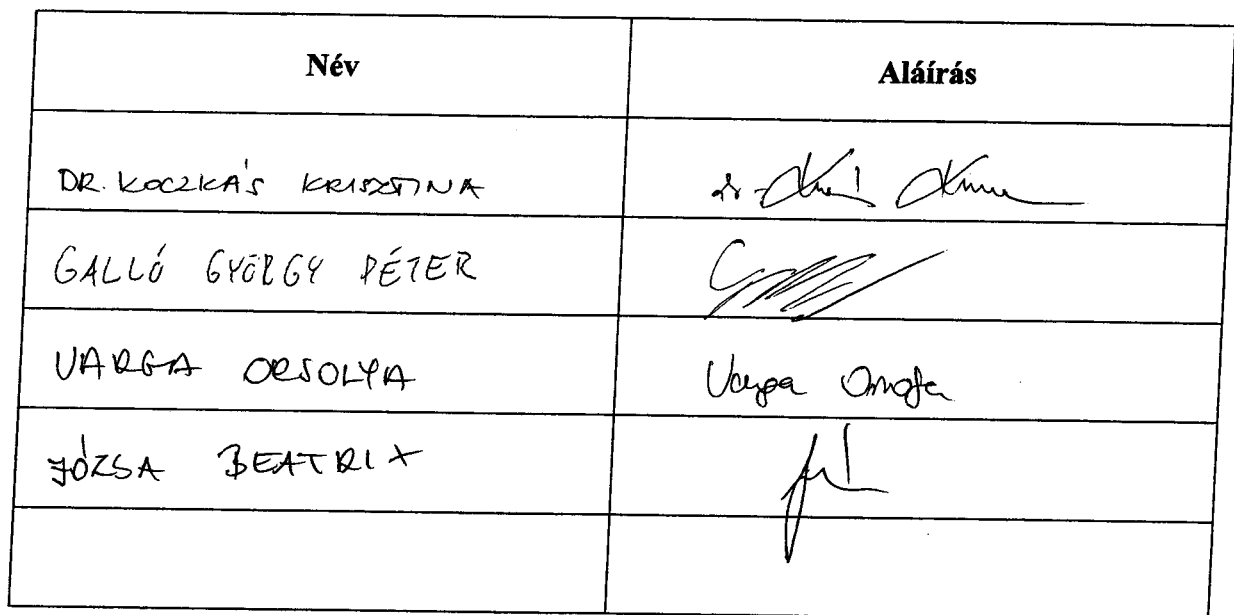 Név Aláírás
DR. KOCZKÁS KRISZTINA dr.
GALLÓ GYÖRGY PÉTER
VARGA ORSOLYA Varga Orsolya
JÓZSA BEATRIX